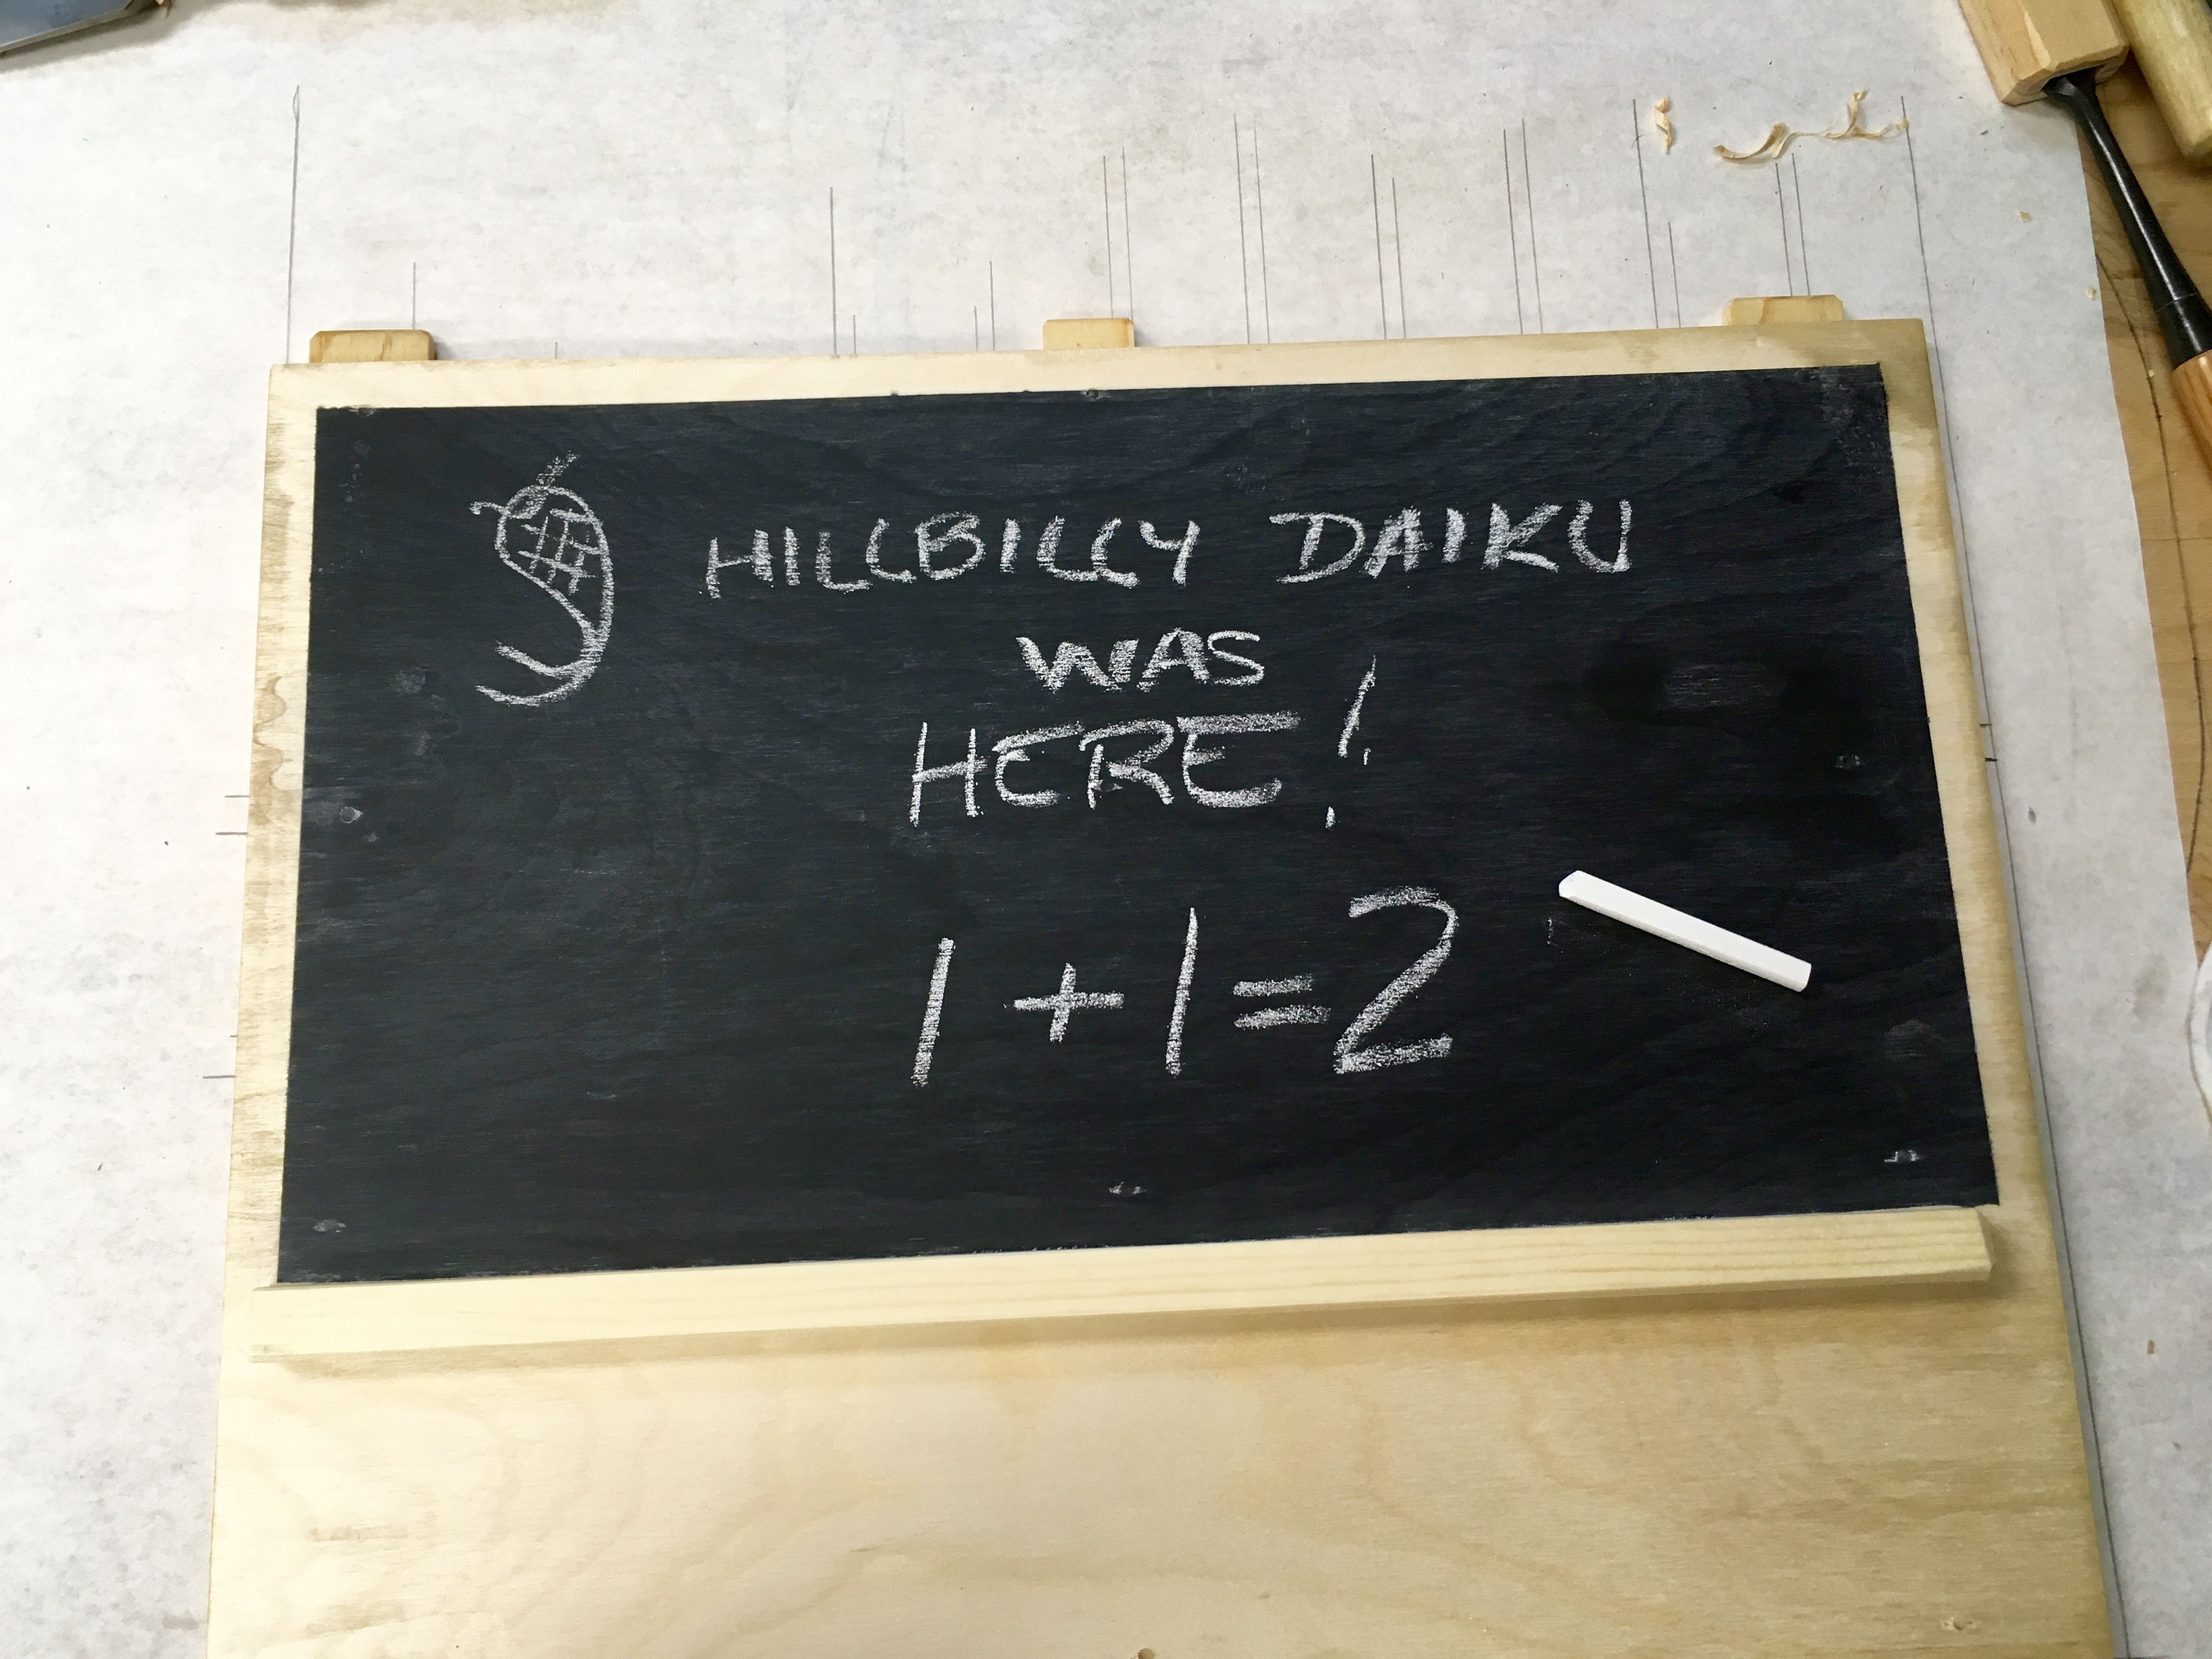 HILLBILLY DAIKU
WAS
HERE!
1+1=2